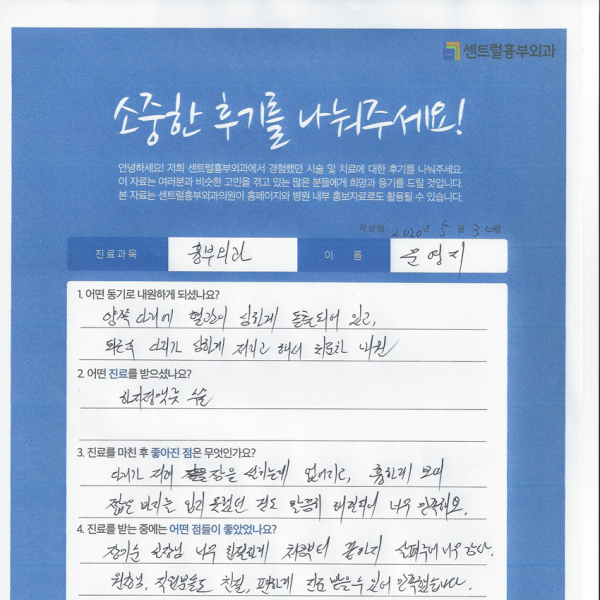 센트럴흉부외과
소중한 후기를 나눠주세요!
안녕하세요! 저희 센트럴흉부외과에서 경험했던 시술 및 치료에 대한 후기를 나눠주세요.
이 자료는 여러분과 비슷한 고민을 겪고 있는 많은 분들에게 희망과 용기를 드릴 것입니다.
본 자료는 센트럴흉부외과의원이 홈페이지와 병원 내부 홍보자료로도 활용될 수 있습니다.
작성일 2020년 5월 30일
진료과목 흉부외과 이 름 윤영지
1. 어떤 동기로 내원하게 되셨나요?
양쪽 다리에 혈관이 심하게 돌출되어 있고,
퇴근후 다리가 심하게 저리고 해서 치료차 내원
2. 어떤 진료를 받으셨나요?
하지정맥류 수술
3. 진료를 마친 후 좋아진 점은 무엇인가요?
다리가 저려 잠을 설치는게 없어지고, 흉한데 보여
짧은 바지는 입지 못했던 것도 말끔히 해결되니 너무 만족해요.
4. 진료를 받는 중에는 어떤 점들이 좋았었나요?
실장님 너무 친절하게 처음부터 끝까지 살펴주네 너무 감사.
원장님, 직원분들도 친절, 편하게 진료 받을수 있어 만족했습니다.